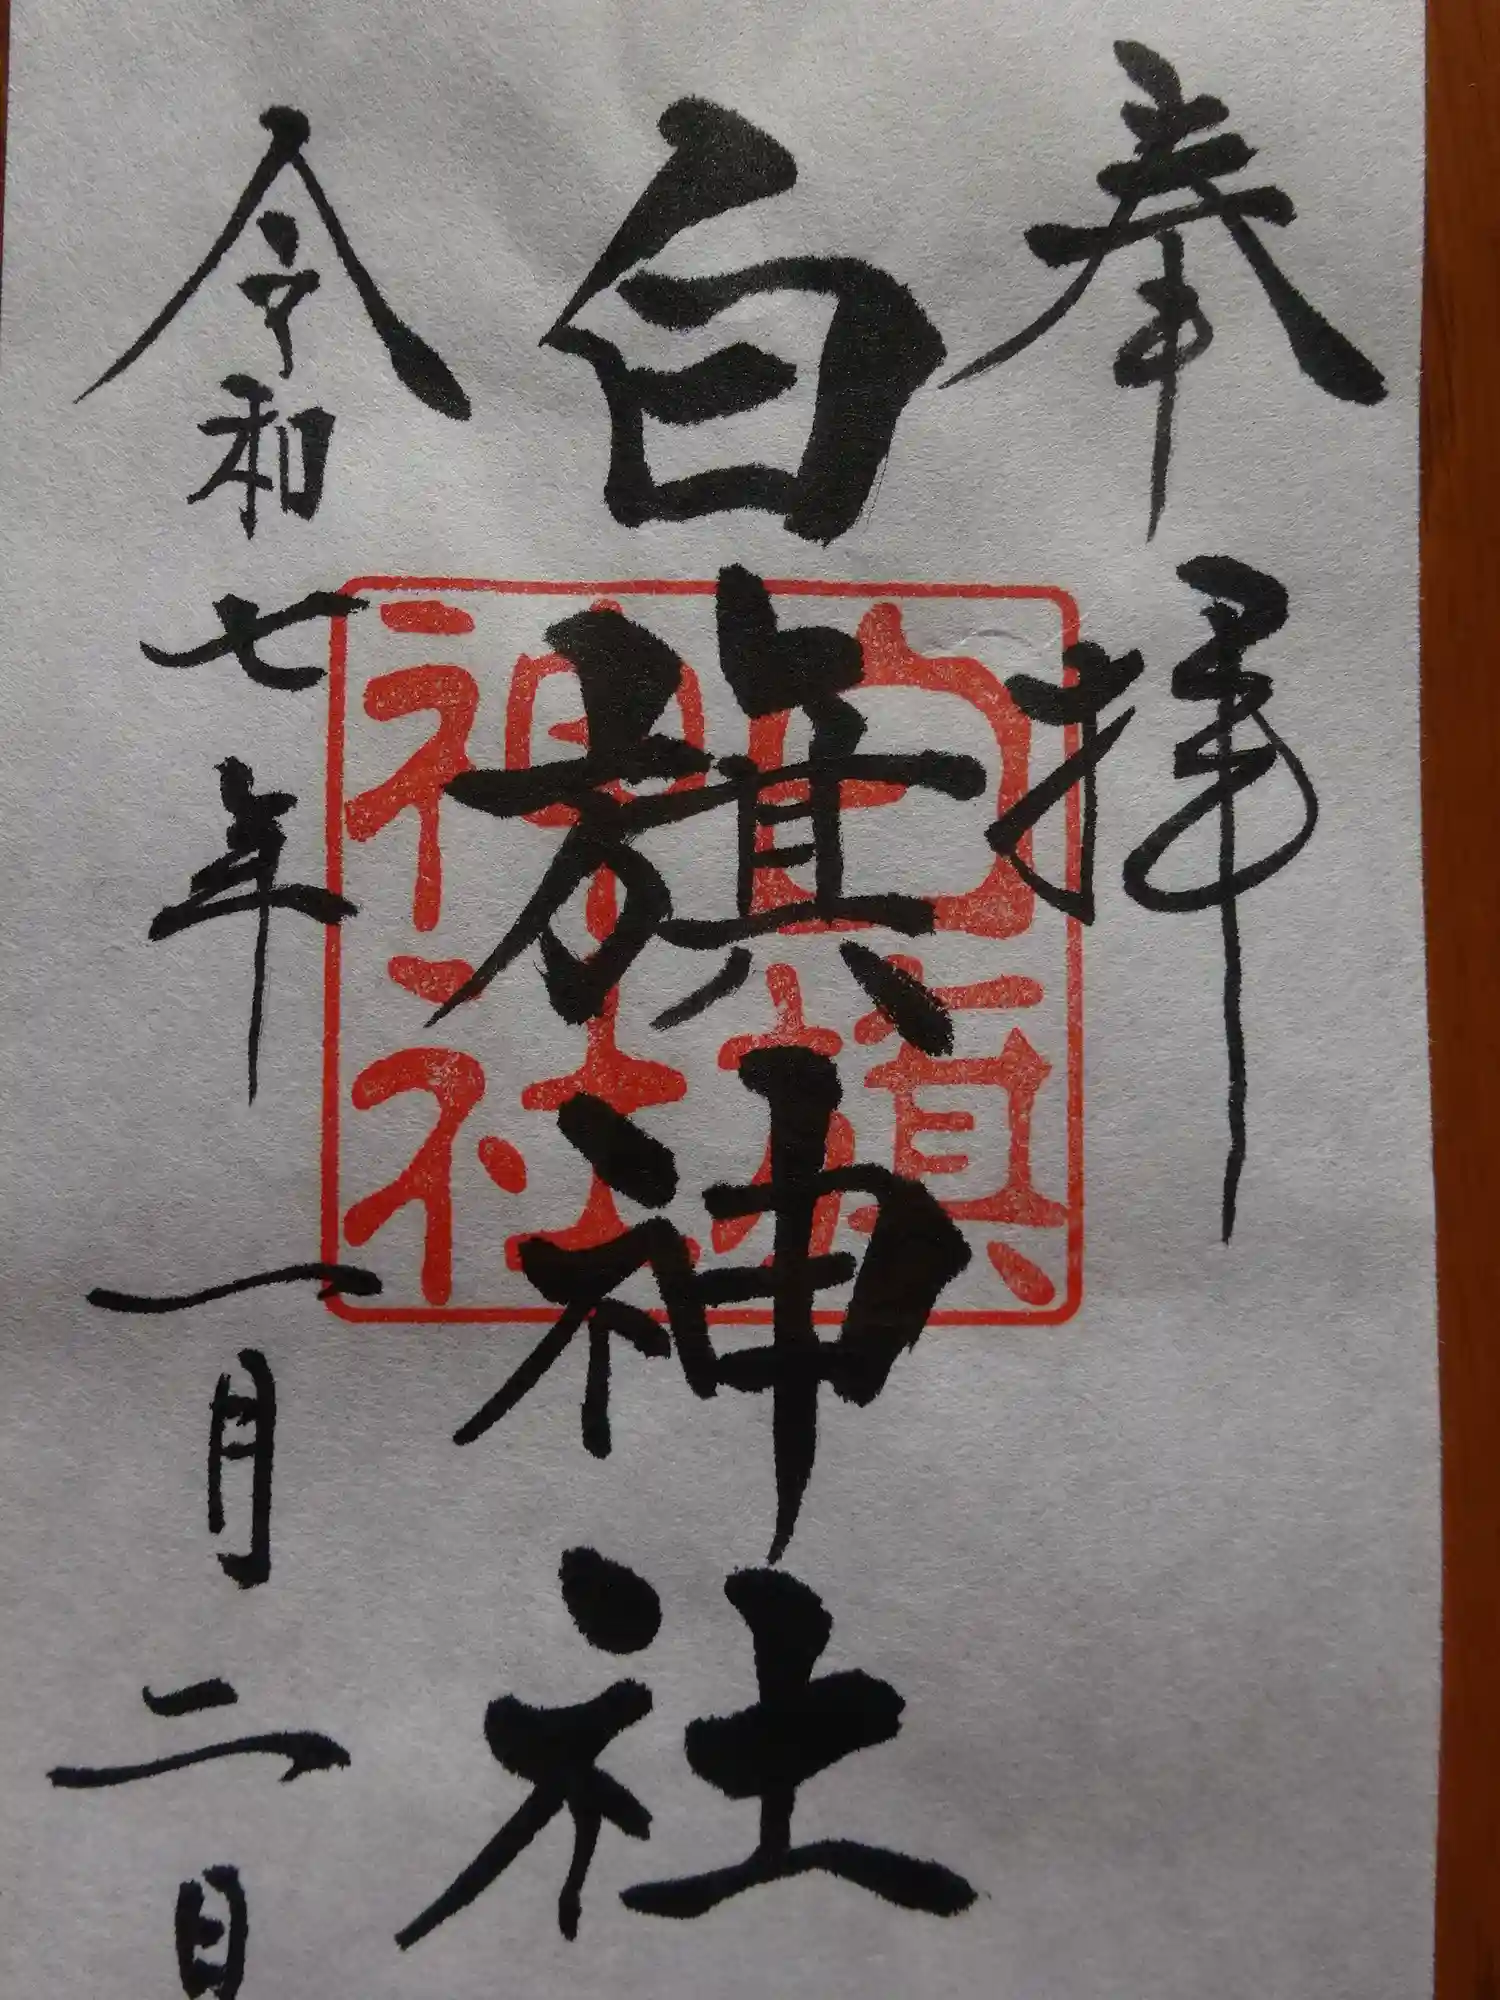 奉拝
白旗神社
白旗
神社
令和七年一月二日